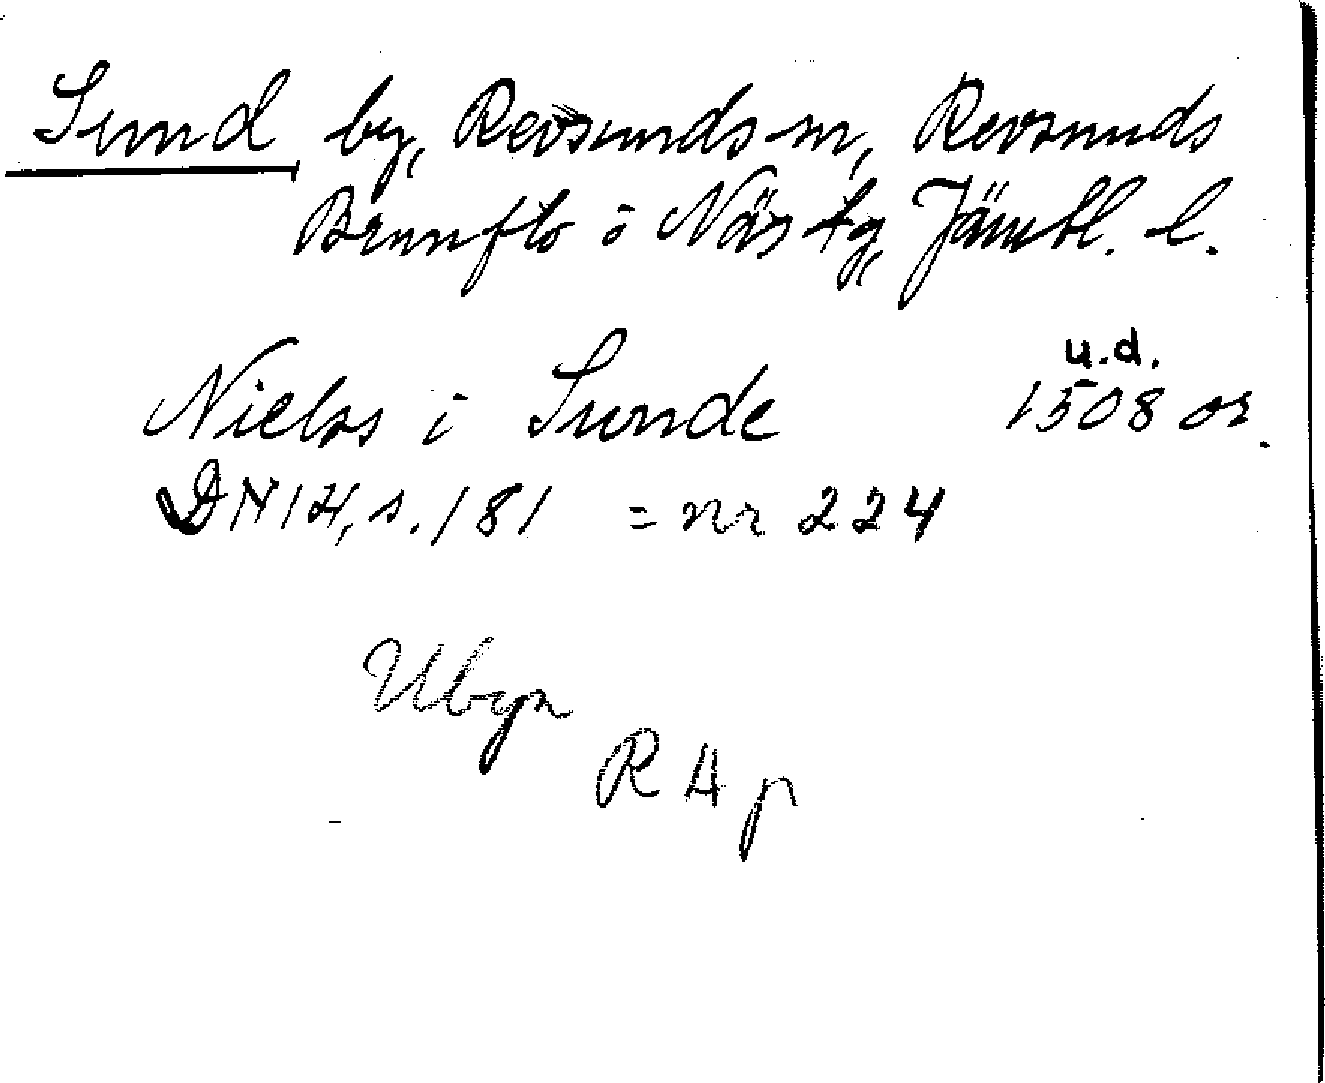 Sund by, Revsunds sn, Revsunds
Brunflo o Näs tg, Jämtl. l.
u.d.
Nielss i Sunde 1508 or.
DN 14, s. 181 = nr 224
Ubyn
RAp